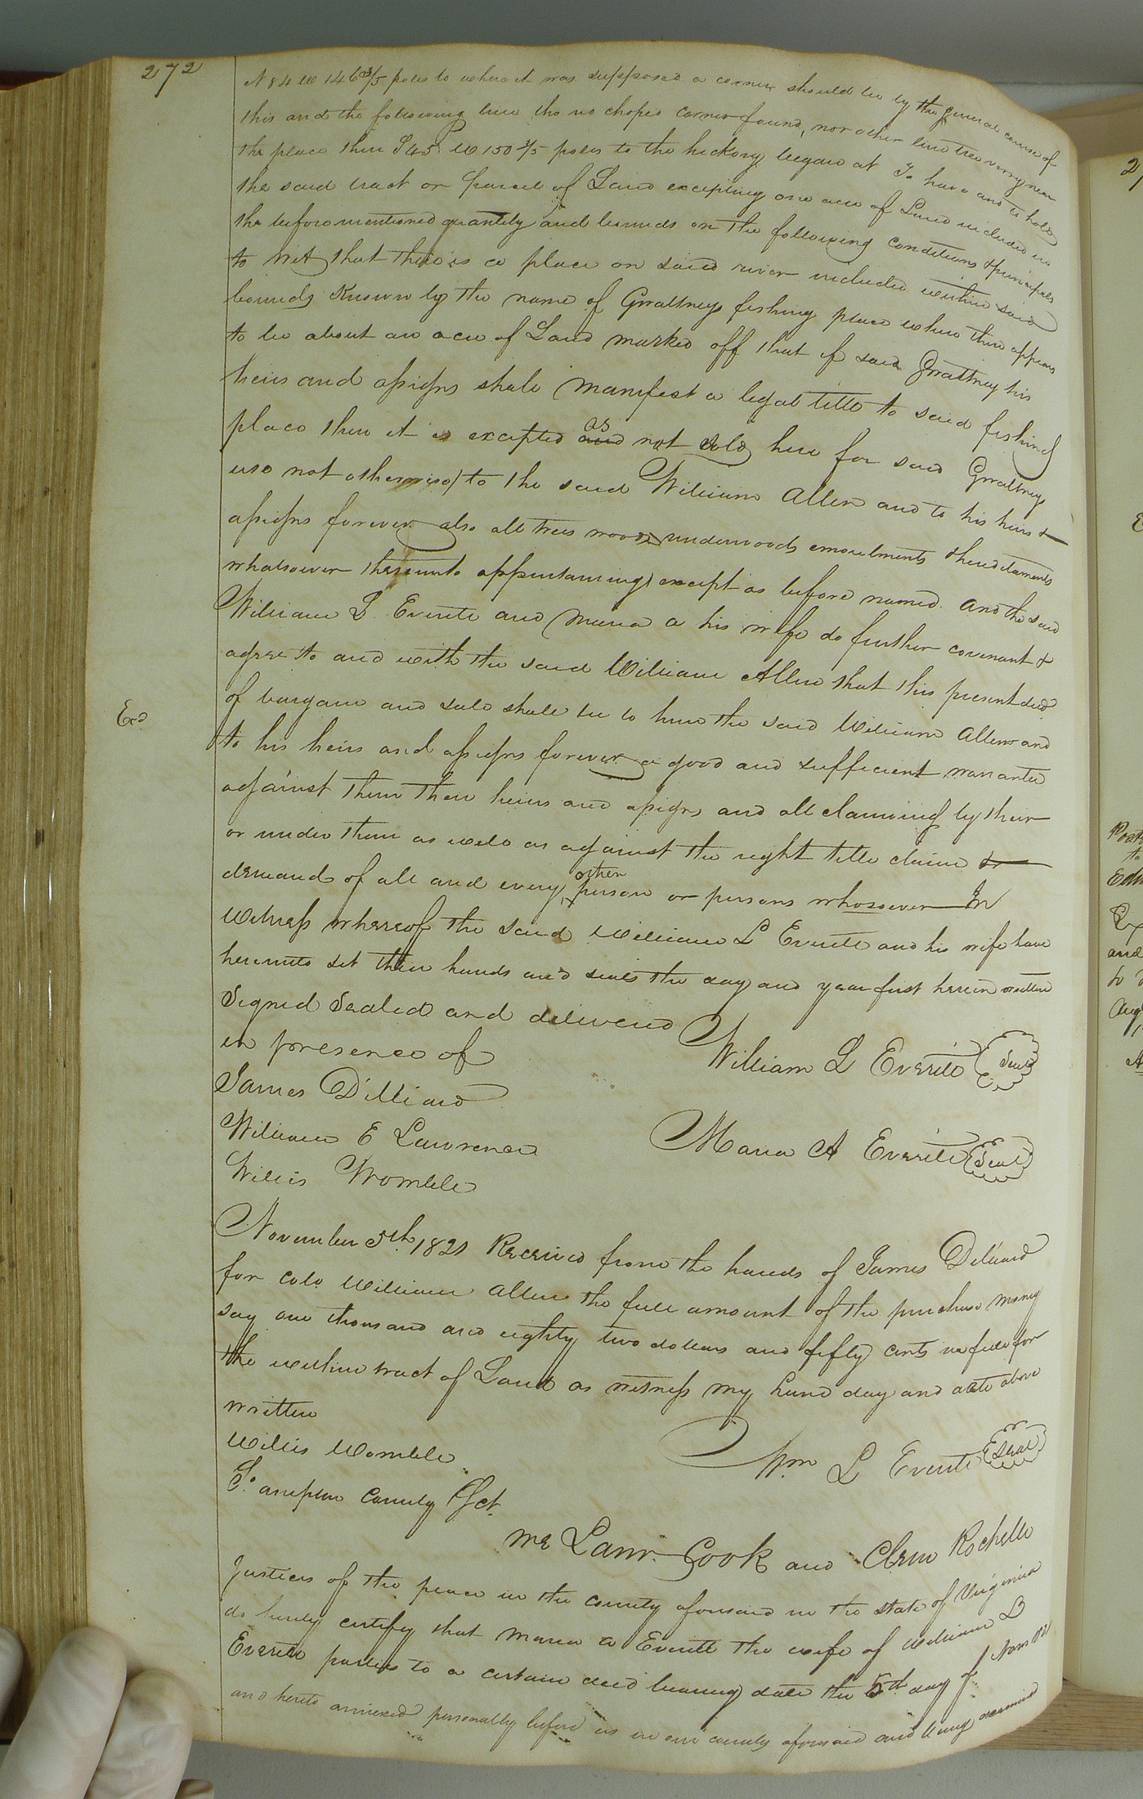 272
N 84 W 146 3/5 poles to where it was supposed a corner should be by the general course of
this and the following line tho no choped corner found, nor other line tree very near
the place then S 45 W 150 2/5 poles to the hickory began at To have and to hold
the said tract or parcel of Land excepting one acre of Land included in
the beforementioned quantity and bounds on the following conditions & principles
to wit, that there is a place on said river included within said
bounds known by the name of Gwaltneys fishing place where there appears
to be about an acre of Land marked off that if said Gwaltney his
heirs and assigns shall manifest a legal title to said fishing
place then it is excepted and as not sold here for said Gwaltneys
use not otherwise) to the said William Allen and to his heirs &
assigns forever also all trees woods underwoods emoulments & hereditaments
whatsoever thereunto appurtaining except as before named. And the said
William L Everitt and Maria A his wife do further covenant &
agree to and with the said William Allen that this present deed
of bargain and sale shall be to him the said William Allen and
Exd.
to his heirs and assigns forever a good and sufficient warrantee
against them their heirs and assigns and all claiming by them
or under them as well as against the right title claim &
demand of all and every other person or persons whosoever In
Witness whereof the said William L Everitt and his wife have
hereunto set their hands and seals the day and year first herein written
Signed Sealed and delivered
in presence of
William L Everitt Seal
James Dilliard
William E Lawrence
Maria A Everitt Seal
Willis Womble
November 5th 1821 Received from the hands of James Dilliard
for Colo William Allen the full amount of the purchase money
say one thousand and eighty two dollars and fifty cents in full for
the within tract of Land as witness my hand day and date above
written
Willis Womble
Wm L Everitt Seal
So. ampton County Sct.
We Lawr. Cook and Clem Rochelle
Justices of the peace in the county aforesaid in the state of Virginia
do hereby certify that Maria A Everitt the wife of William L
Everitt parties to a certain deed bearing date the 5th day of Novr 1821
and hereto annexed personally before us in our county aforesaid and being examined